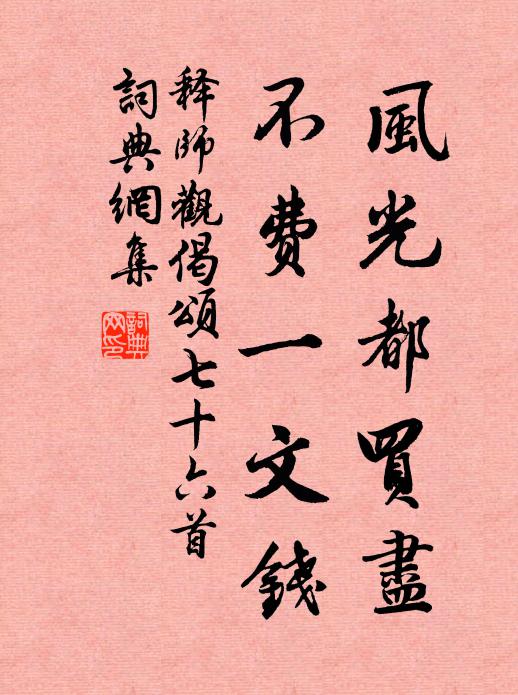 風光都買盡
不费一文錢
释師觀偈頌七十六首
詞典網集
詞典网印